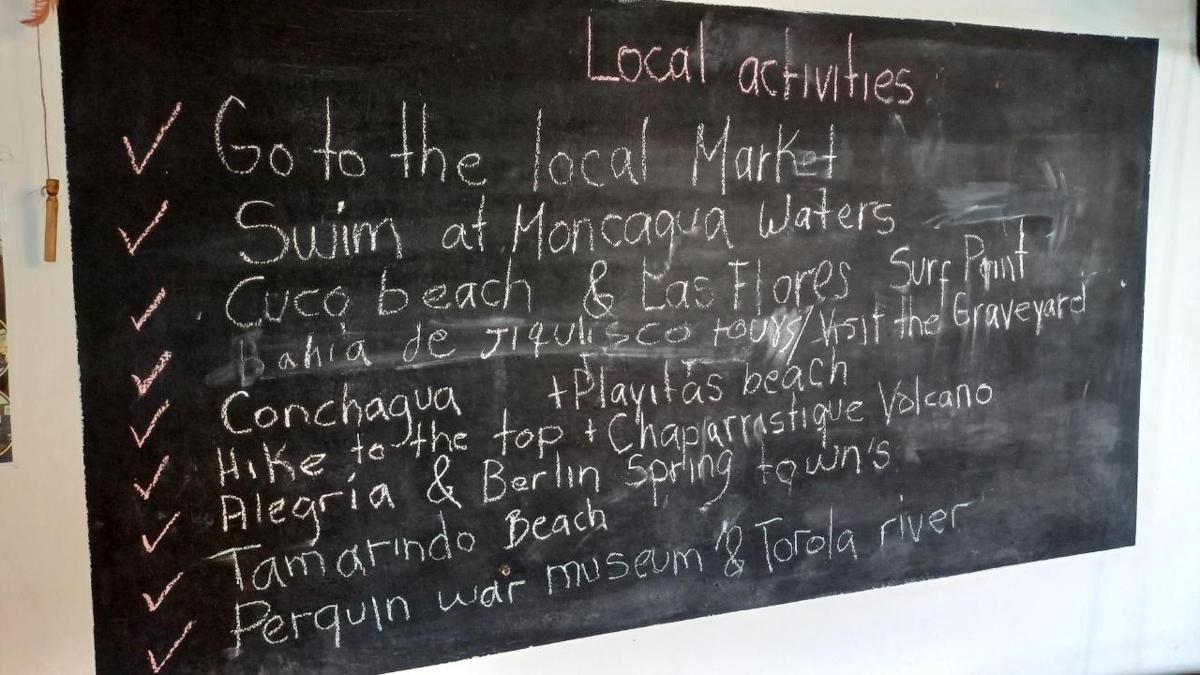 Local activities
✓ Go to the local Market
✓ Swim at Moncagua Waters
✓ Cuco beach & Las Flores Surf Point
✓ Bahia de Jiquilisco tours/Visit the Graveyard
✓ Conchagua +Playitas beach
✓ Hike to the top + Chaparrastique Volcano
✓ Alegría & Berlin Spring town's
✓ Tamarindo Beach
✓ Perquin war museum & Torola river